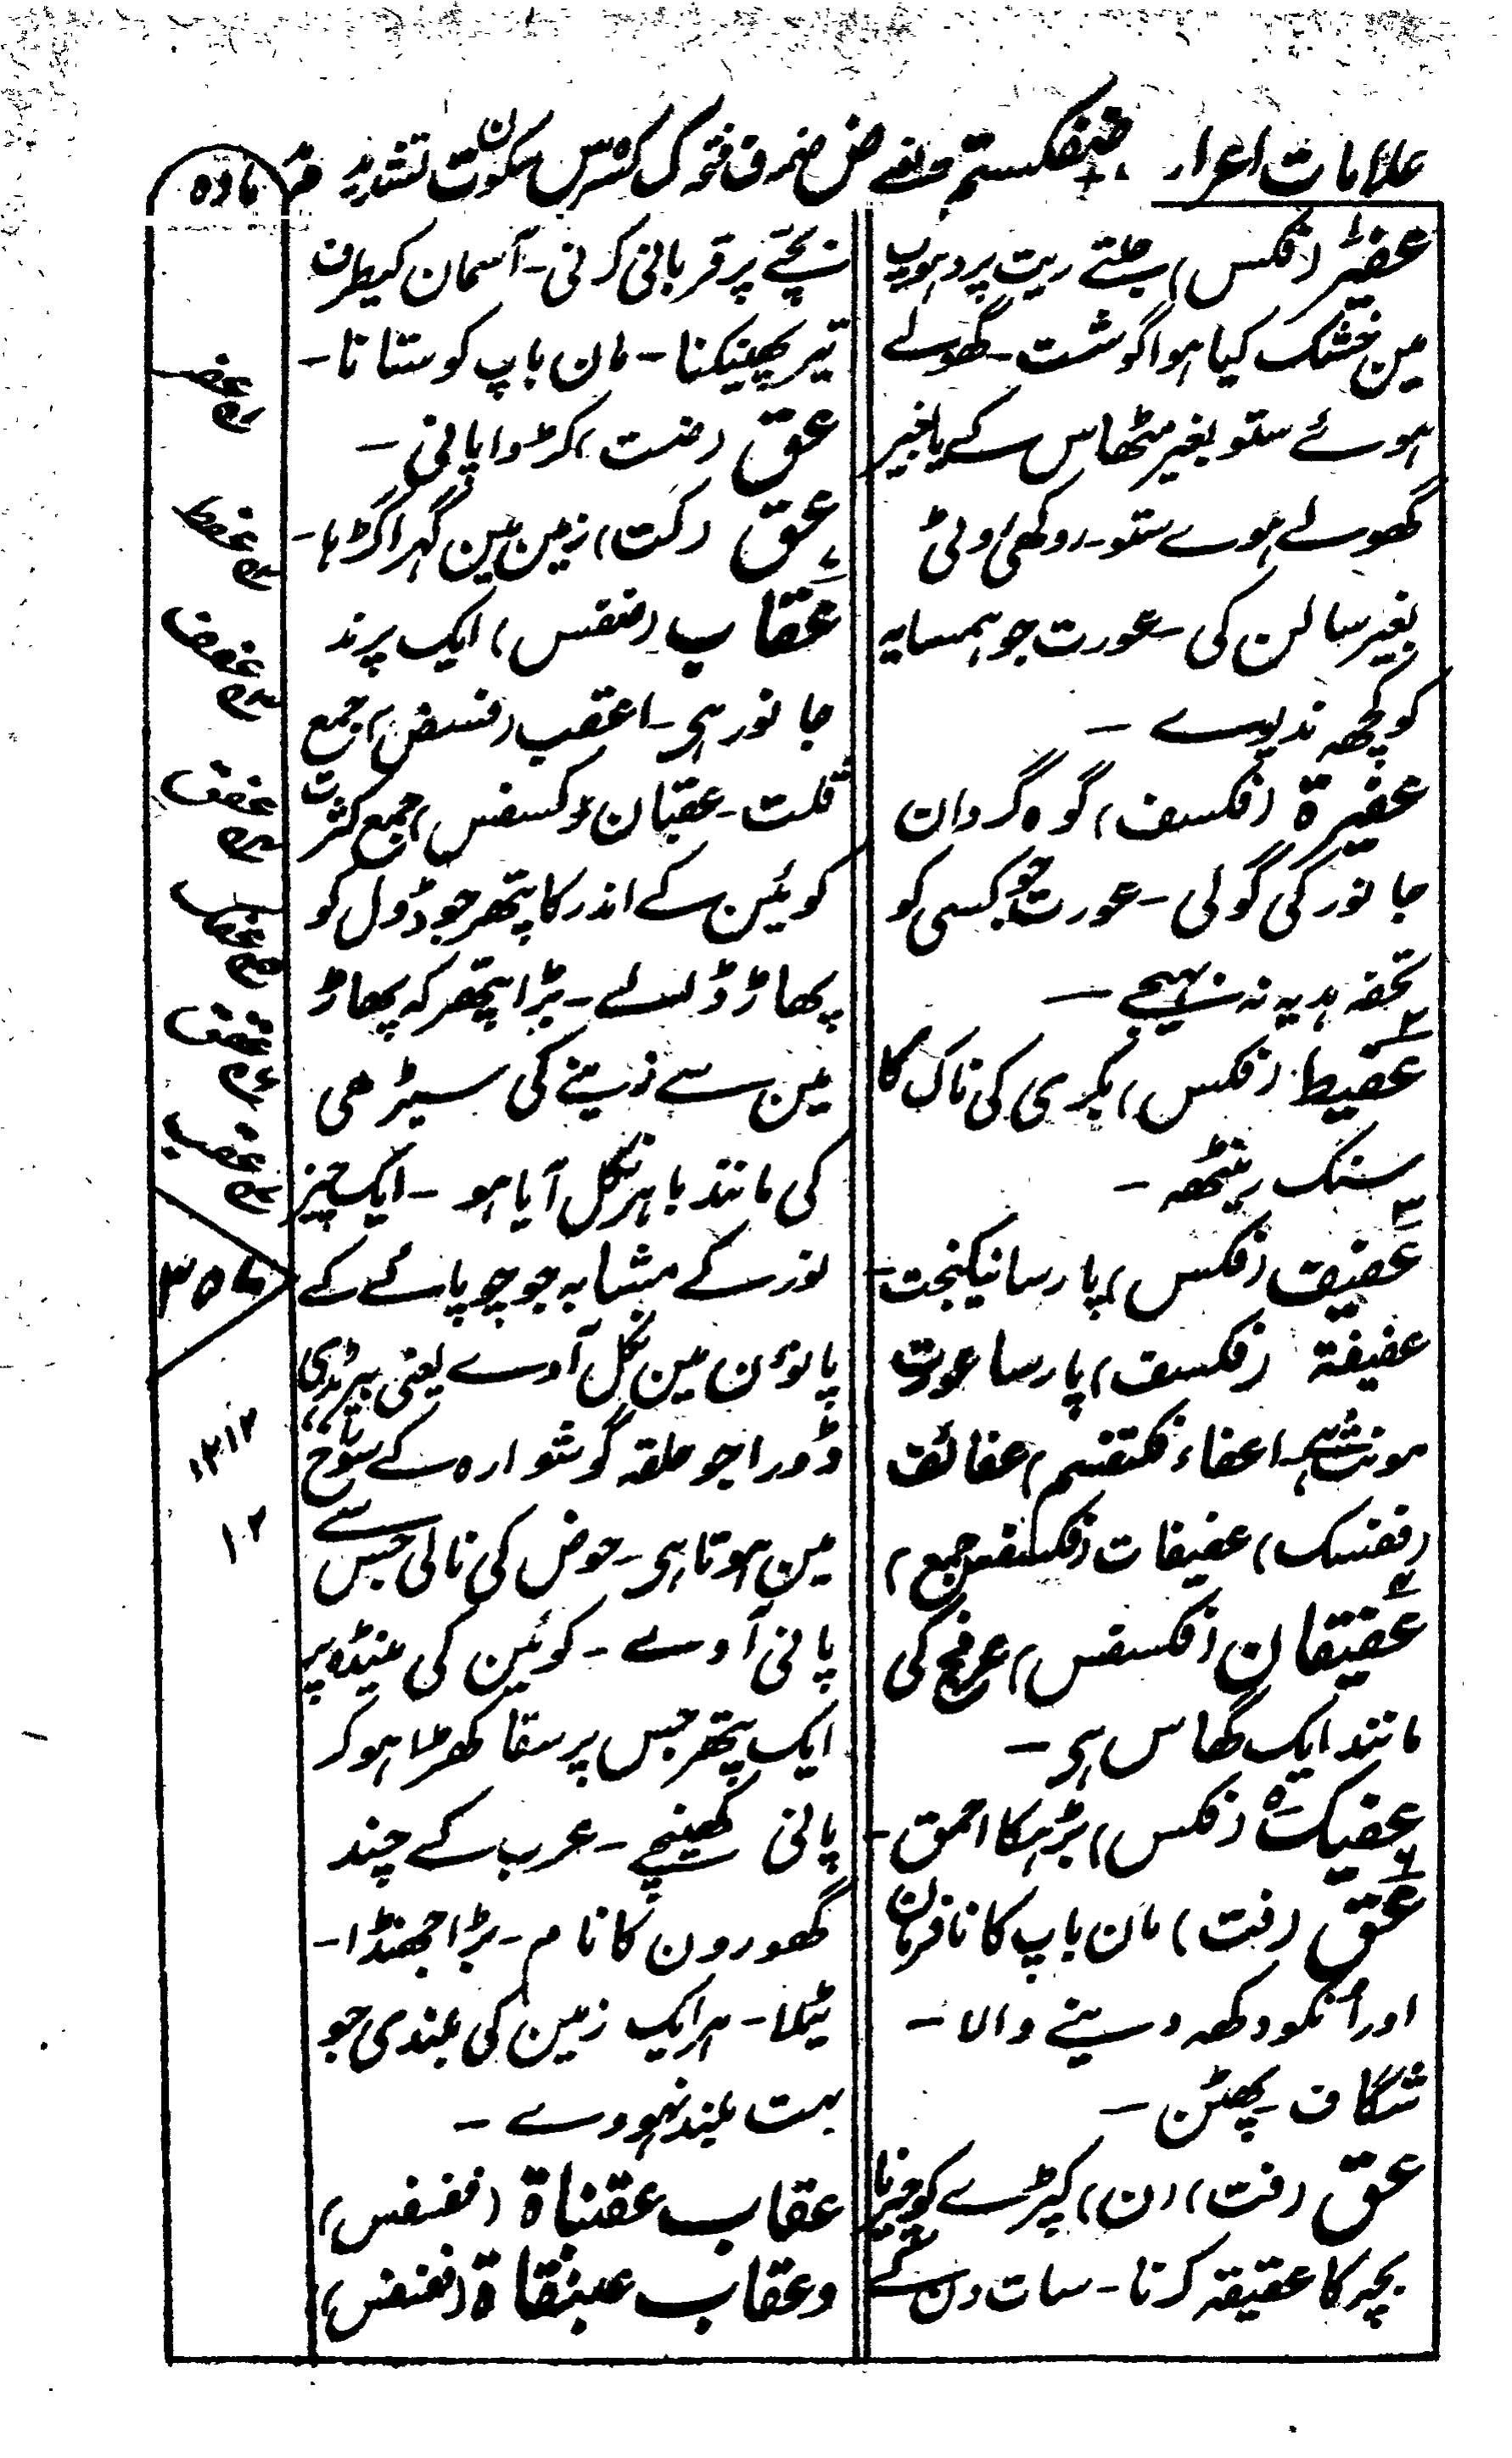 علامات اعراب ضفکستم یعنے ض ضمہ ف فتحہ ک کسرہ س سکون ت تشدید م مادہ
عفیر (فکس) جلتے ریت پر دہوپ
مین خشک کیا ہوا گوشت۔ گھولے
ہوئے ستو بغیر مٹھاس کے یا بغیر
گھولے ہوے ستو۔ روکھی روٹی
بغیر سالن کی۔ عورت جو ہمسایہ
کو کچھہ ندیوے۔
عفیرة (فکسف) گوہ گردان
جانور کی گولی۔ عورت جو کسی کو
تحفہ ہدیہ نہ بہیجے۔
عفیط (فکس) بکری کی ناک کا
سنک رینٹھہ۔
عفیف (فکس) پارسا نیکبخت۔
عفیفة (فکسف) پارسا عورت
مونث ہی۔ اعفاء فکتفسم عفائف
(ففسک) عفیفات (فکسفس جمع)
عفیقان (فکسفس) عرفج کی
مانند ایک گھاس ہی۔
عفیک (فکس) بڑہکا احمق۔
عق (فت) مان باپ کا نافرمان
اور اُنکو دکھہ دینے والا۔
شگاف۔ پھٹن۔
عق (فت) (ن) کپڑے کو چیرنا
بچہ کا عقیقہ کرنا۔ سات دن کے
بچے پر قربانی کرنی۔ آسمان کیطرف
تیر پھینکنا۔ مان باپ کو ستانا۔
عق (ضت) کڑوا پانی۔
عق (کت) زمین مین گہرا گڑہا۔
عقاب (ضفس) ایک پرند
جانور ہی۔ اعقب (فسض) جمع
قلت۔ عقبان (کسفس) جمع کثرت
کوئین کے اندر کا پتھر جو ڈول کو
پھاڑ ڈالے۔ بڑا پتھر کہ پھاڑ
مین سے زینے کی سیڑھی
کی مانند باہر نکل آیا ہو۔ ایک چیز
لوز کے مشابہ جو چوپائے کے
پانوٴن مین نکل آوے یعنی بیرہڈی
ڈورا جو حلقہ گوشوارہ کے سوراخ
مین ہوتا ہی۔ حوض کی نالی جس سے
پانی آوے۔ کوئین کی مینڈہ پر
ایک پتھر جس پر سقا کھڑا ہو کر
پانی کھینچے۔ عرب کے چند
گھورون کا نام۔ بڑا جھنڈا۔
ٹیکلا۔ ہر ایک زمین کی بلندی جو
بہت بلند نہووے۔
عقاب عقنباة (ففسفس)
وعقاب عبنقاة (ففسفس)
عفر
عفط
عفف
عفق
عفک
عقق
عقب
۱۲